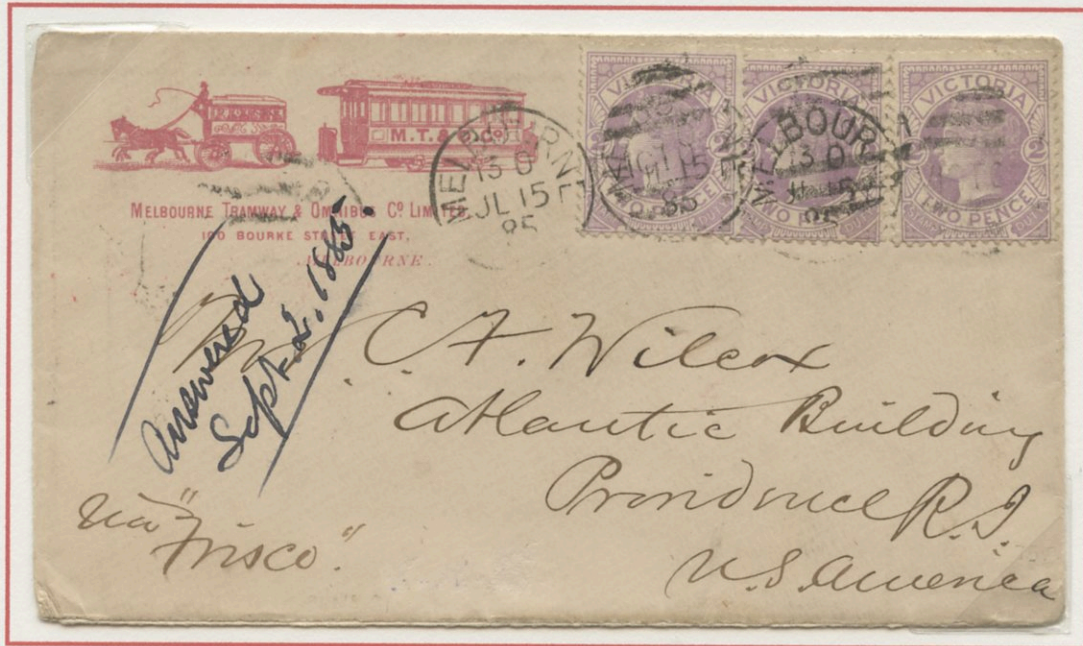 M.T. & O. Co
MELBOURNE TRAMWAY & OMNIBUS CO. LIMITED,
100 BOURKE STREET EAST,
MELBOURNE.
MELBOURNE
13 O
JL 15
85
VICTORIA
TWO PENCE
MELBOURNE
13 O
JL 15
85
VICTORIA
TWO PENCE
VICTORIA
TWO PENCE
STAMP DUTY
Answered
Sept. 2, 1885.
Mr. C. F. Wilcox
Atlantic Building
Providence R.I.
U.S. America
Via "Frisco."